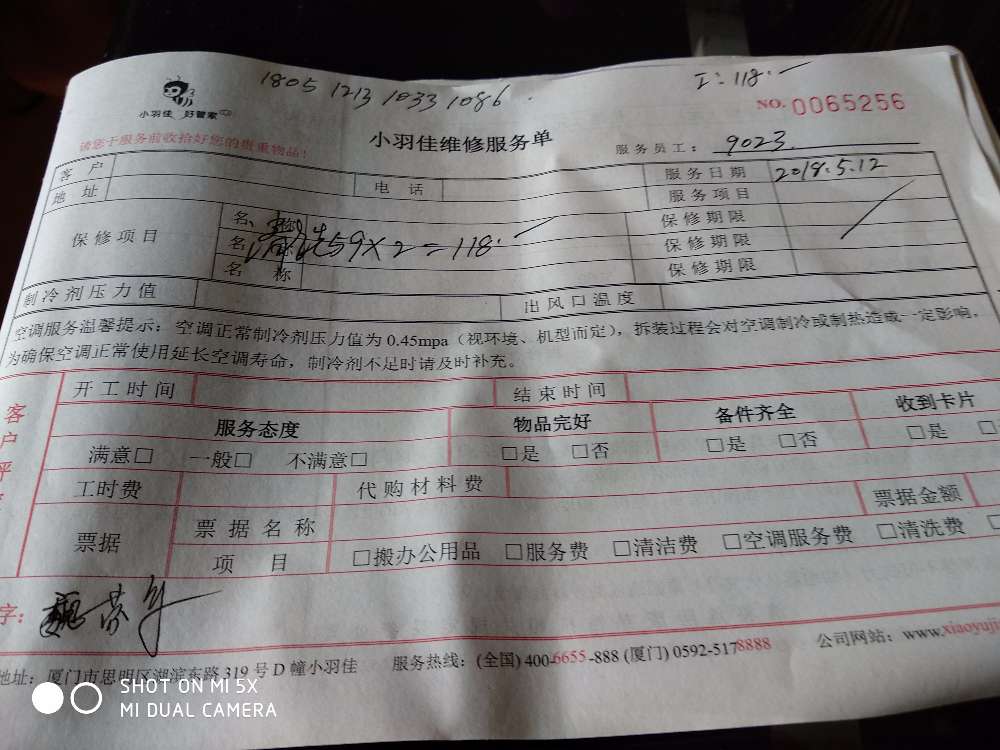 1805 1213 1033 1086
I: 118.-
小羽佳 好管家
NO. 0065256
请您于服务前收拾好您的贵重物品！
小羽佳维修服务单
服务员工： 9023
客 户
地 址
电 话
服务日期 2018.5.12
服务项目
保修项目
名 称
保修期限
名 称 清洗59×2=118.-
保修期限
名 称
保修期限
制冷剂压力值
出风口温度
空调服务温馨提示：空调正常制冷剂压力值为 0.45mpa（视环境、机型而定），拆装过程会对空调制冷或制热造成一定影响，
为确保空调正常使用延长空调寿命，制冷剂不足时请及时补充。
客户评
开工时间
结束时间
服务态度
物品完好
备件齐全
收到卡片
满意□ 一般□ 不满意□
□是 □否
□是 □否
□是 □
工时费
代购材料费
票据
票据名称
票据金额
项 目
□搬办公用品 □服务费 □清洁费 □空调服务费 □清洗费
字：
地址：厦门市思明区湖滨东路 319 号 D 幢小羽佳 服务热线：(全国) 400-6655-888 (厦门) 0592-5178888 公司网站：www.xiaoyuji
SHOT ON MI 5X
MI DUAL CAMERA